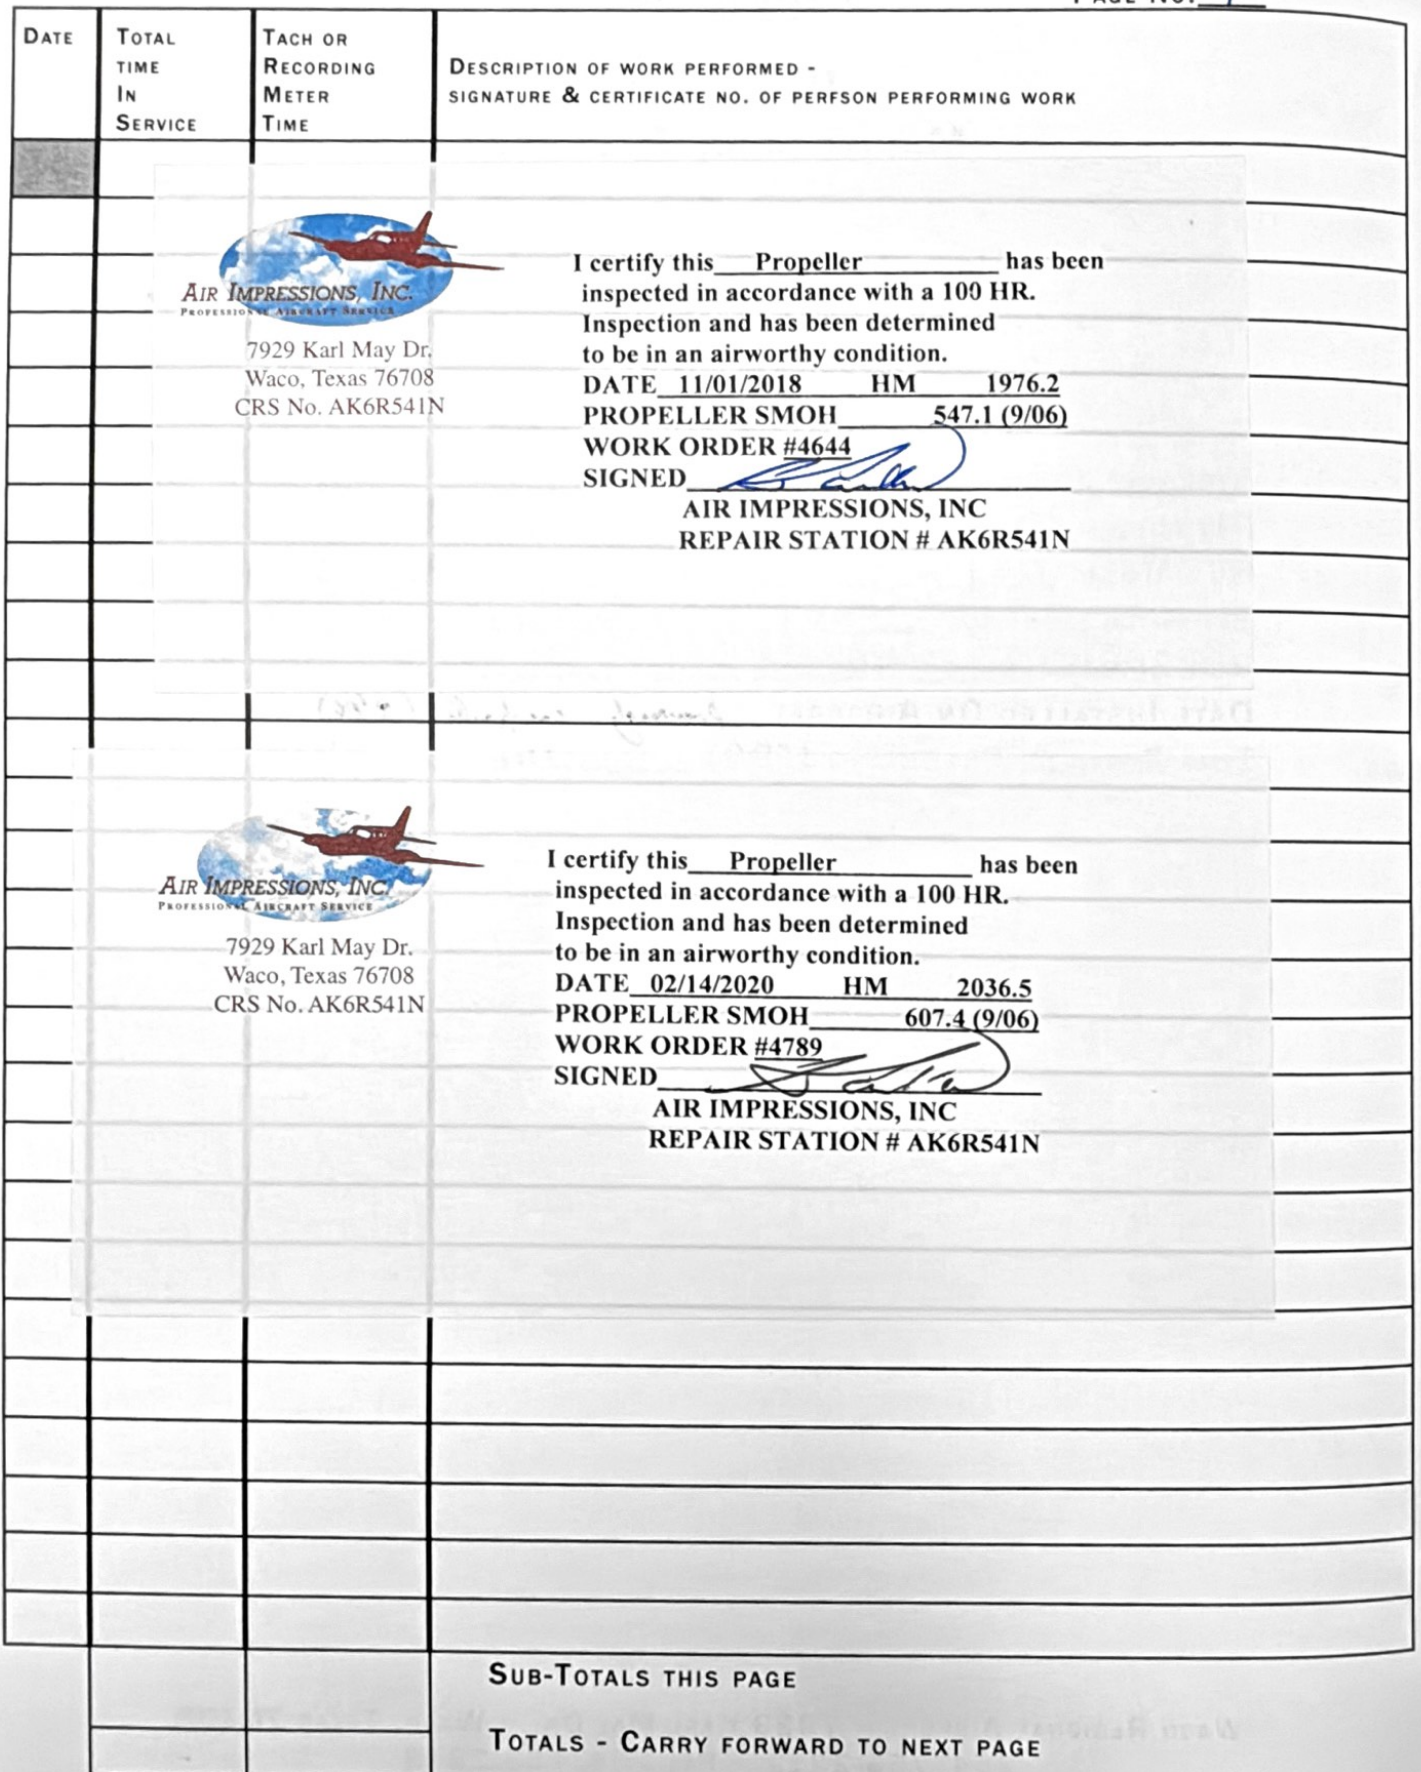 PAGE NO.
DATE
TOTAL
TIME
IN
SERVICE
TACH OR
RECORDING
METER
TIME
DESCRIPTION OF WORK PERFORMED -
SIGNATURE & CERTIFICATE NO. OF PERFSON PERFORMING WORK
AIR IMPRESSIONS, INC.
PROFESSIONAL AIRCRAFT SERVICE
7929 Karl May Dr.
Waco, Texas 76708
CRS No. AK6R541N
I certify this Propeller has been
inspected in accordance with a 100 HR.
Inspection and has been determined
to be in an airworthy condition.
DATE 11/01/2018 HM 1976.2
PROPELLER SMOH 547.1 (9/06)
WORK ORDER #4644
SIGNED
AIR IMPRESSIONS, INC
REPAIR STATION # AK6R541N
AIR IMPRESSIONS, INC.
PROFESSIONAL AIRCRAFT SERVICE
7929 Karl May Dr.
Waco, Texas 76708
CRS No. AK6R541N
I certify this Propeller has been
inspected in accordance with a 100 HR.
Inspection and has been determined
to be in an airworthy condition.
DATE 02/14/2020 HM 2036.5
PROPELLER SMOH 607.4 (9/06)
WORK ORDER #4789
SIGNED
AIR IMPRESSIONS, INC
REPAIR STATION # AK6R541N
SUB-TOTALS THIS PAGE
TOTALS - CARRY FORWARD TO NEXT PAGE